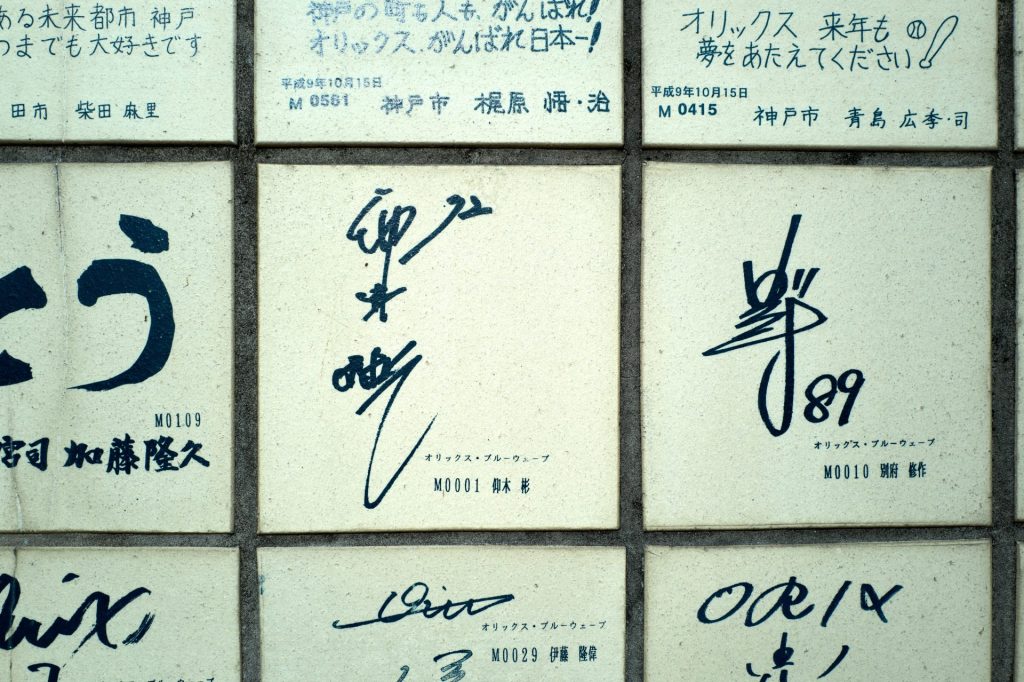 ある未来都市 神戸
つまでも大好きです
田市 柴田 麻里
神戸の町も人も、がんばれ!
オリックス、がんばれ日本一!
平成9年10月15日
M 0561 神戸市 梶原 悟・治
オリックス 来年も
夢をあたえてください!
平成9年10月15日
M 0415 神戸市 青島 広季・司
とう
M0109
宮司 加藤隆久
72
仰木
彬
オリックス・ブルーウェーブ
M0001 仰木 彬
89
オリックス・ブルーウェーブ
M0010 別府 修作
オリックス・ブルーウェーブ
M0029 伊藤 隆偉
ORIX